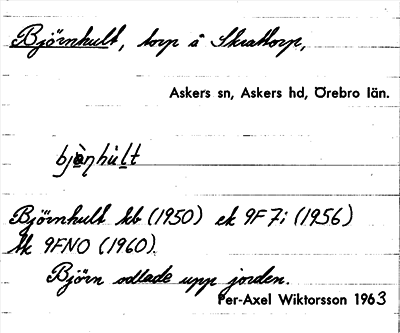 Björnhult, torp å Skrattorp,
Askers sn, Askers hd, Örebro län.
Björnhult kb (1950) ek 9F7i (1956)
tk 9FNO (1960).
Björn odlade upp jorden.
Per-Axel Wiktorsson 1963